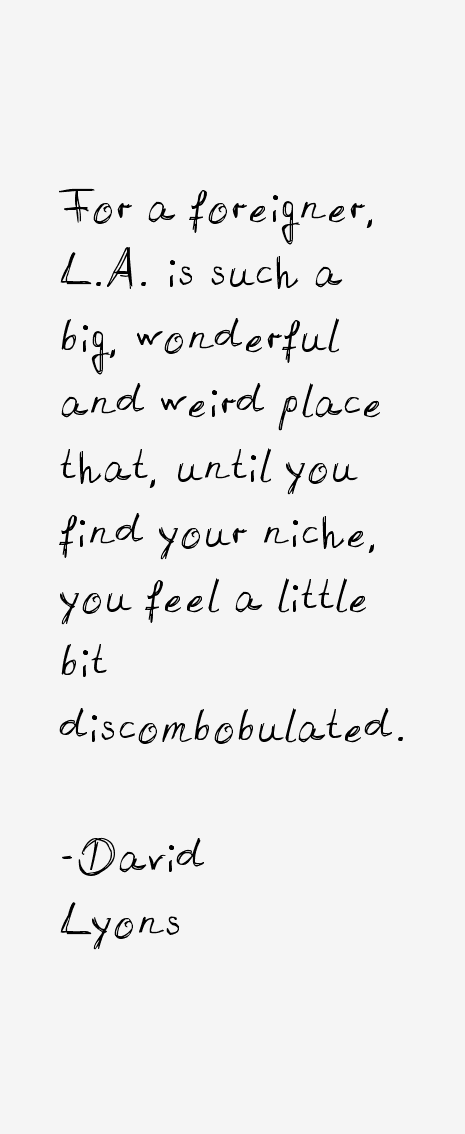 For a foreigner,
L.A. is such a
big, wonderful
and weird place
that, until you
find your niche,
you feel a little
bit
discombobulated.
-David
Lyons